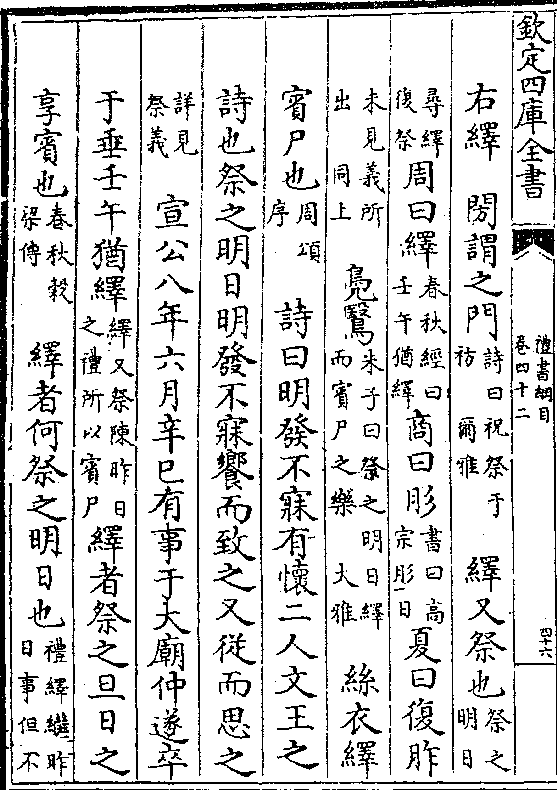 欽定四庫全書
禮書綱目
卷四十二
四十六
右繹　閍謂之門詩曰祝祭于祊　爾雅　繹又祭也祭之明日
尋繹復祭周曰繹春秋經曰壬午猶繹商曰肜書曰高宗肜日夏曰復胙
未見義所出　同上　鳧鷖朱子曰祭之明日繹而賓尸之樂　大雅　絲衣繹
賓尸也周頌序　詩曰明發不寐有懷二人文王之
詩也祭之明日明發不寐饗而致之又從而思之
詳見祭義　宣公八年六月辛巳有事于大廟仲遂卒
于垂壬午猶繹繹又祭陳昨日之禮所以賓尸繹者祭之旦日之
享賓也春秋穀梁傳　繹者何祭之明日也禮繹繼昨日事但不